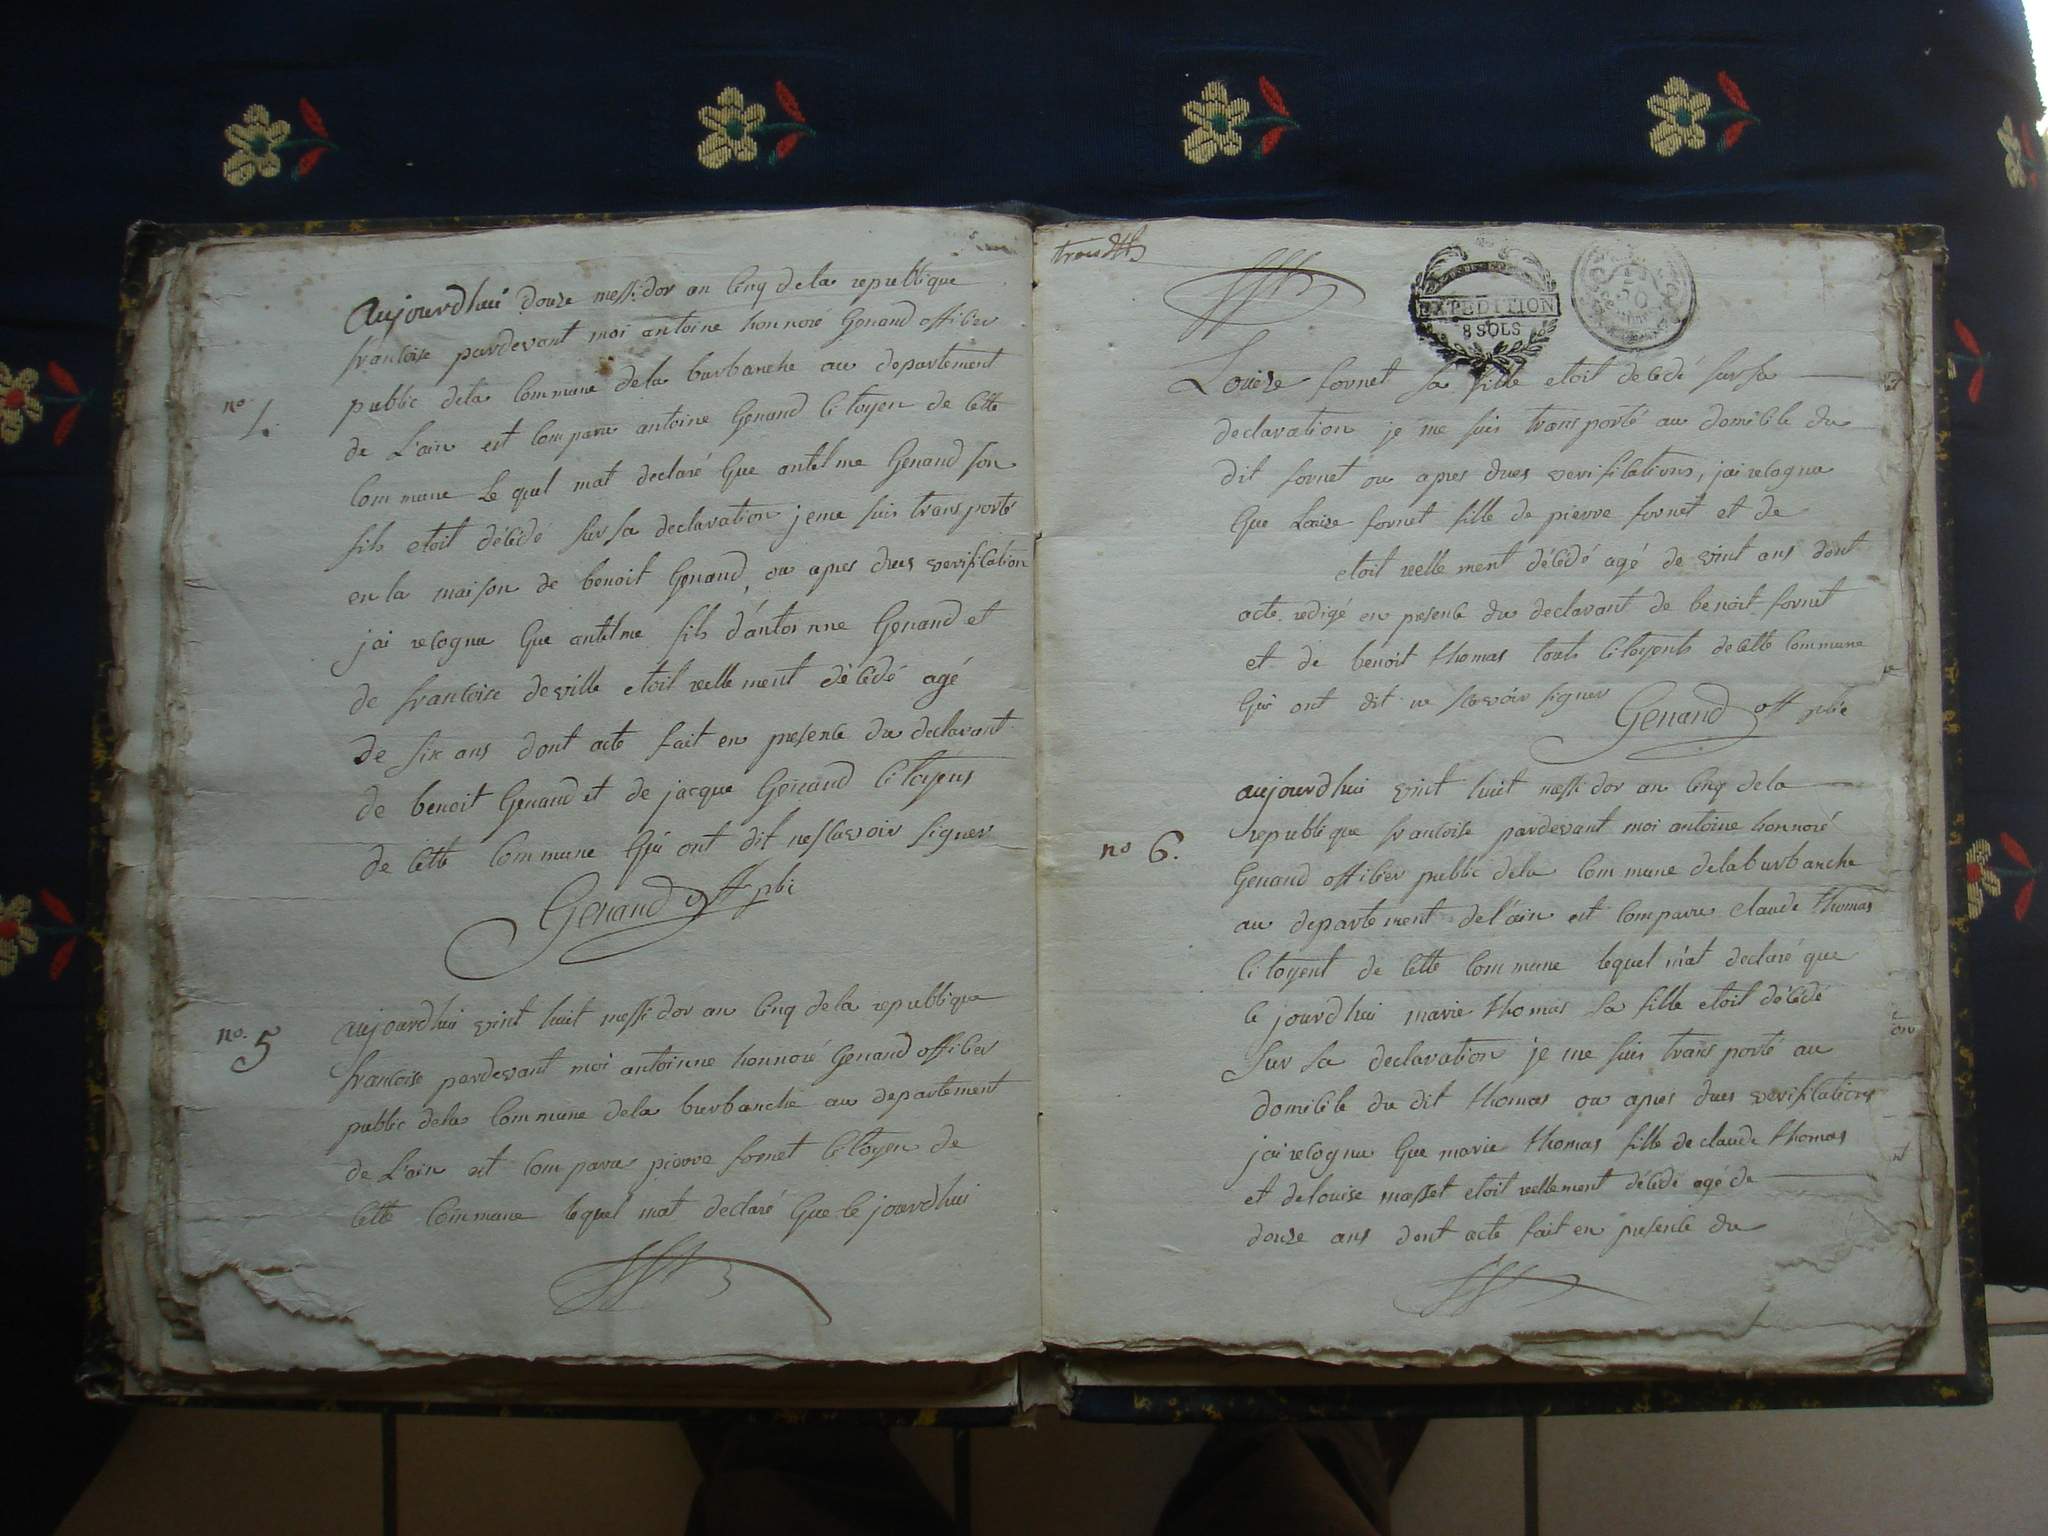 aujourdhui douze messidor an cinq dela republique
francoise pardevant moi antoine honnoré Genand officier
public dela commune dela burbanche au departement
no
1.
de L'ain est comparu antoine Genand citoyen de cette
commune Le quel mat declaré que antelme Genand son
fils etoit décédé sur sa declaration jeme suis transporté
en la maison de benoit Genand, ou apres dues verification
jai recognu que antelme fils d'antoinne Genand et
de francoise deville etoit reellement décédé agé
de six ans dont acte fait en presence du declarant
de benoit Genand et de jacque Genand citoyens
de cette commune qui ont dit ne scavoir signer
Genand off pbic
no.
5
aujourdhui vint huit messidor an cinq dela republique
francoise pardevant moi antoinne honnoré Genand officier
public dela commune dela burbanche au departement
de L'ain est comparu pierre fornet citoyen de
cette commune lequel mat declaré que ce jourdhui
trois
EXPEDITION
8 SOLS
Louise fornet sa fille etoit décédé sur sa
declaration je me suis transporté au domicile du
dit fornet ou apres dues verifications, jai recognu
que Louise fornet fille de pierre fornet et de
etoit reellement décédé agé de vint ans dont
acte redigé en presence du declarant de benoit fornet
et de benoit thomas touts citoyents de cette commune
qui ont dit ne scavoir signer
Genand off pbic
no 6.
aujourdhui vint huit messidor an cinq dela
republique francoise pardevant moi antoine honnoré
Genand officier public dela commune dela burbanche
au departement de l'ain est comparu claude thomas
citoyent de cette commune lequel m'at declaré que
ce jourdhui marie thomas sa fille etoit décédé
sur sa declaration je me suis transporté au
domicile du dit thomas ou apres dues verifications
jai recognu que marie thomas fille de claude thomas
et de louise masset etoit reellement décédé agé de
douze ans dont acte fait en presence du